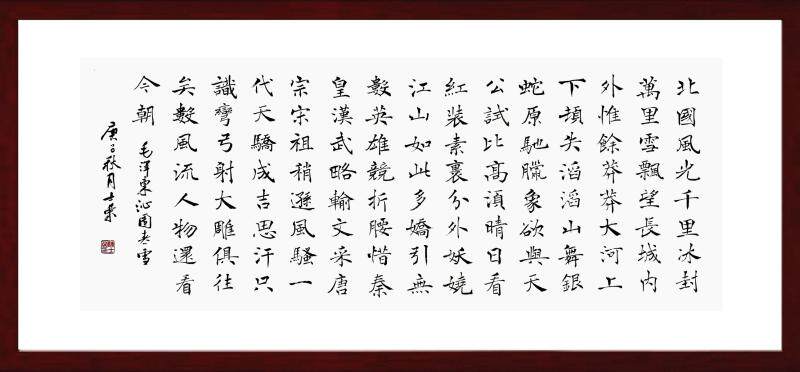 北國風光千里冰封
萬里雪飄望長城內
外惟餘莽莽大河上
下頓失滔滔山舞銀
蛇原馳臘象欲與天
公試比高須晴日看
紅裝素裹分外妖嬈
江山如此多嬌引無
數英雄競折腰惜秦
皇漢武略輸文采唐
宗宋祖稍遜風騷一
代天驕成吉思汗只
識彎弓射大雕俱往
矣數風流人物還看
今朝 毛澤東沁園春雪
庚子秋月士榮